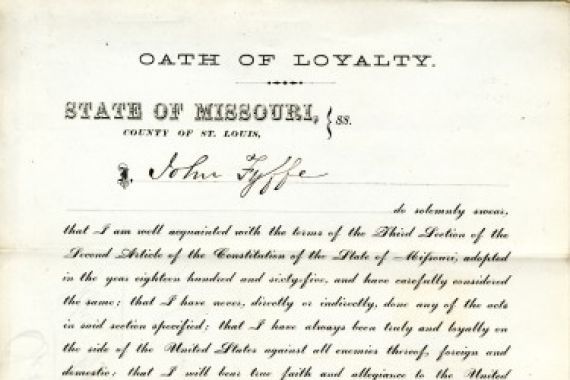 OATH OF LOYALTY.
STATE OF MISSOURI, } ss.
COUNTY OF ST. LOUIS,
I, John Fyffe
do solemnly swear,
that I am well acquainted with the terms of the Third Section of the
Second Article of the Constitution of the State of Missouri, adopted
in the year eighteen hundred and sixty-five, and have carefully considered
the same; that I have never, directly or indirectly, done any of the acts
in said section specified; that I have always been truly and loyally on
the side of the United States against all enemies thereof, foreign and
domestic; that I will bear true faith and allegiance to the United